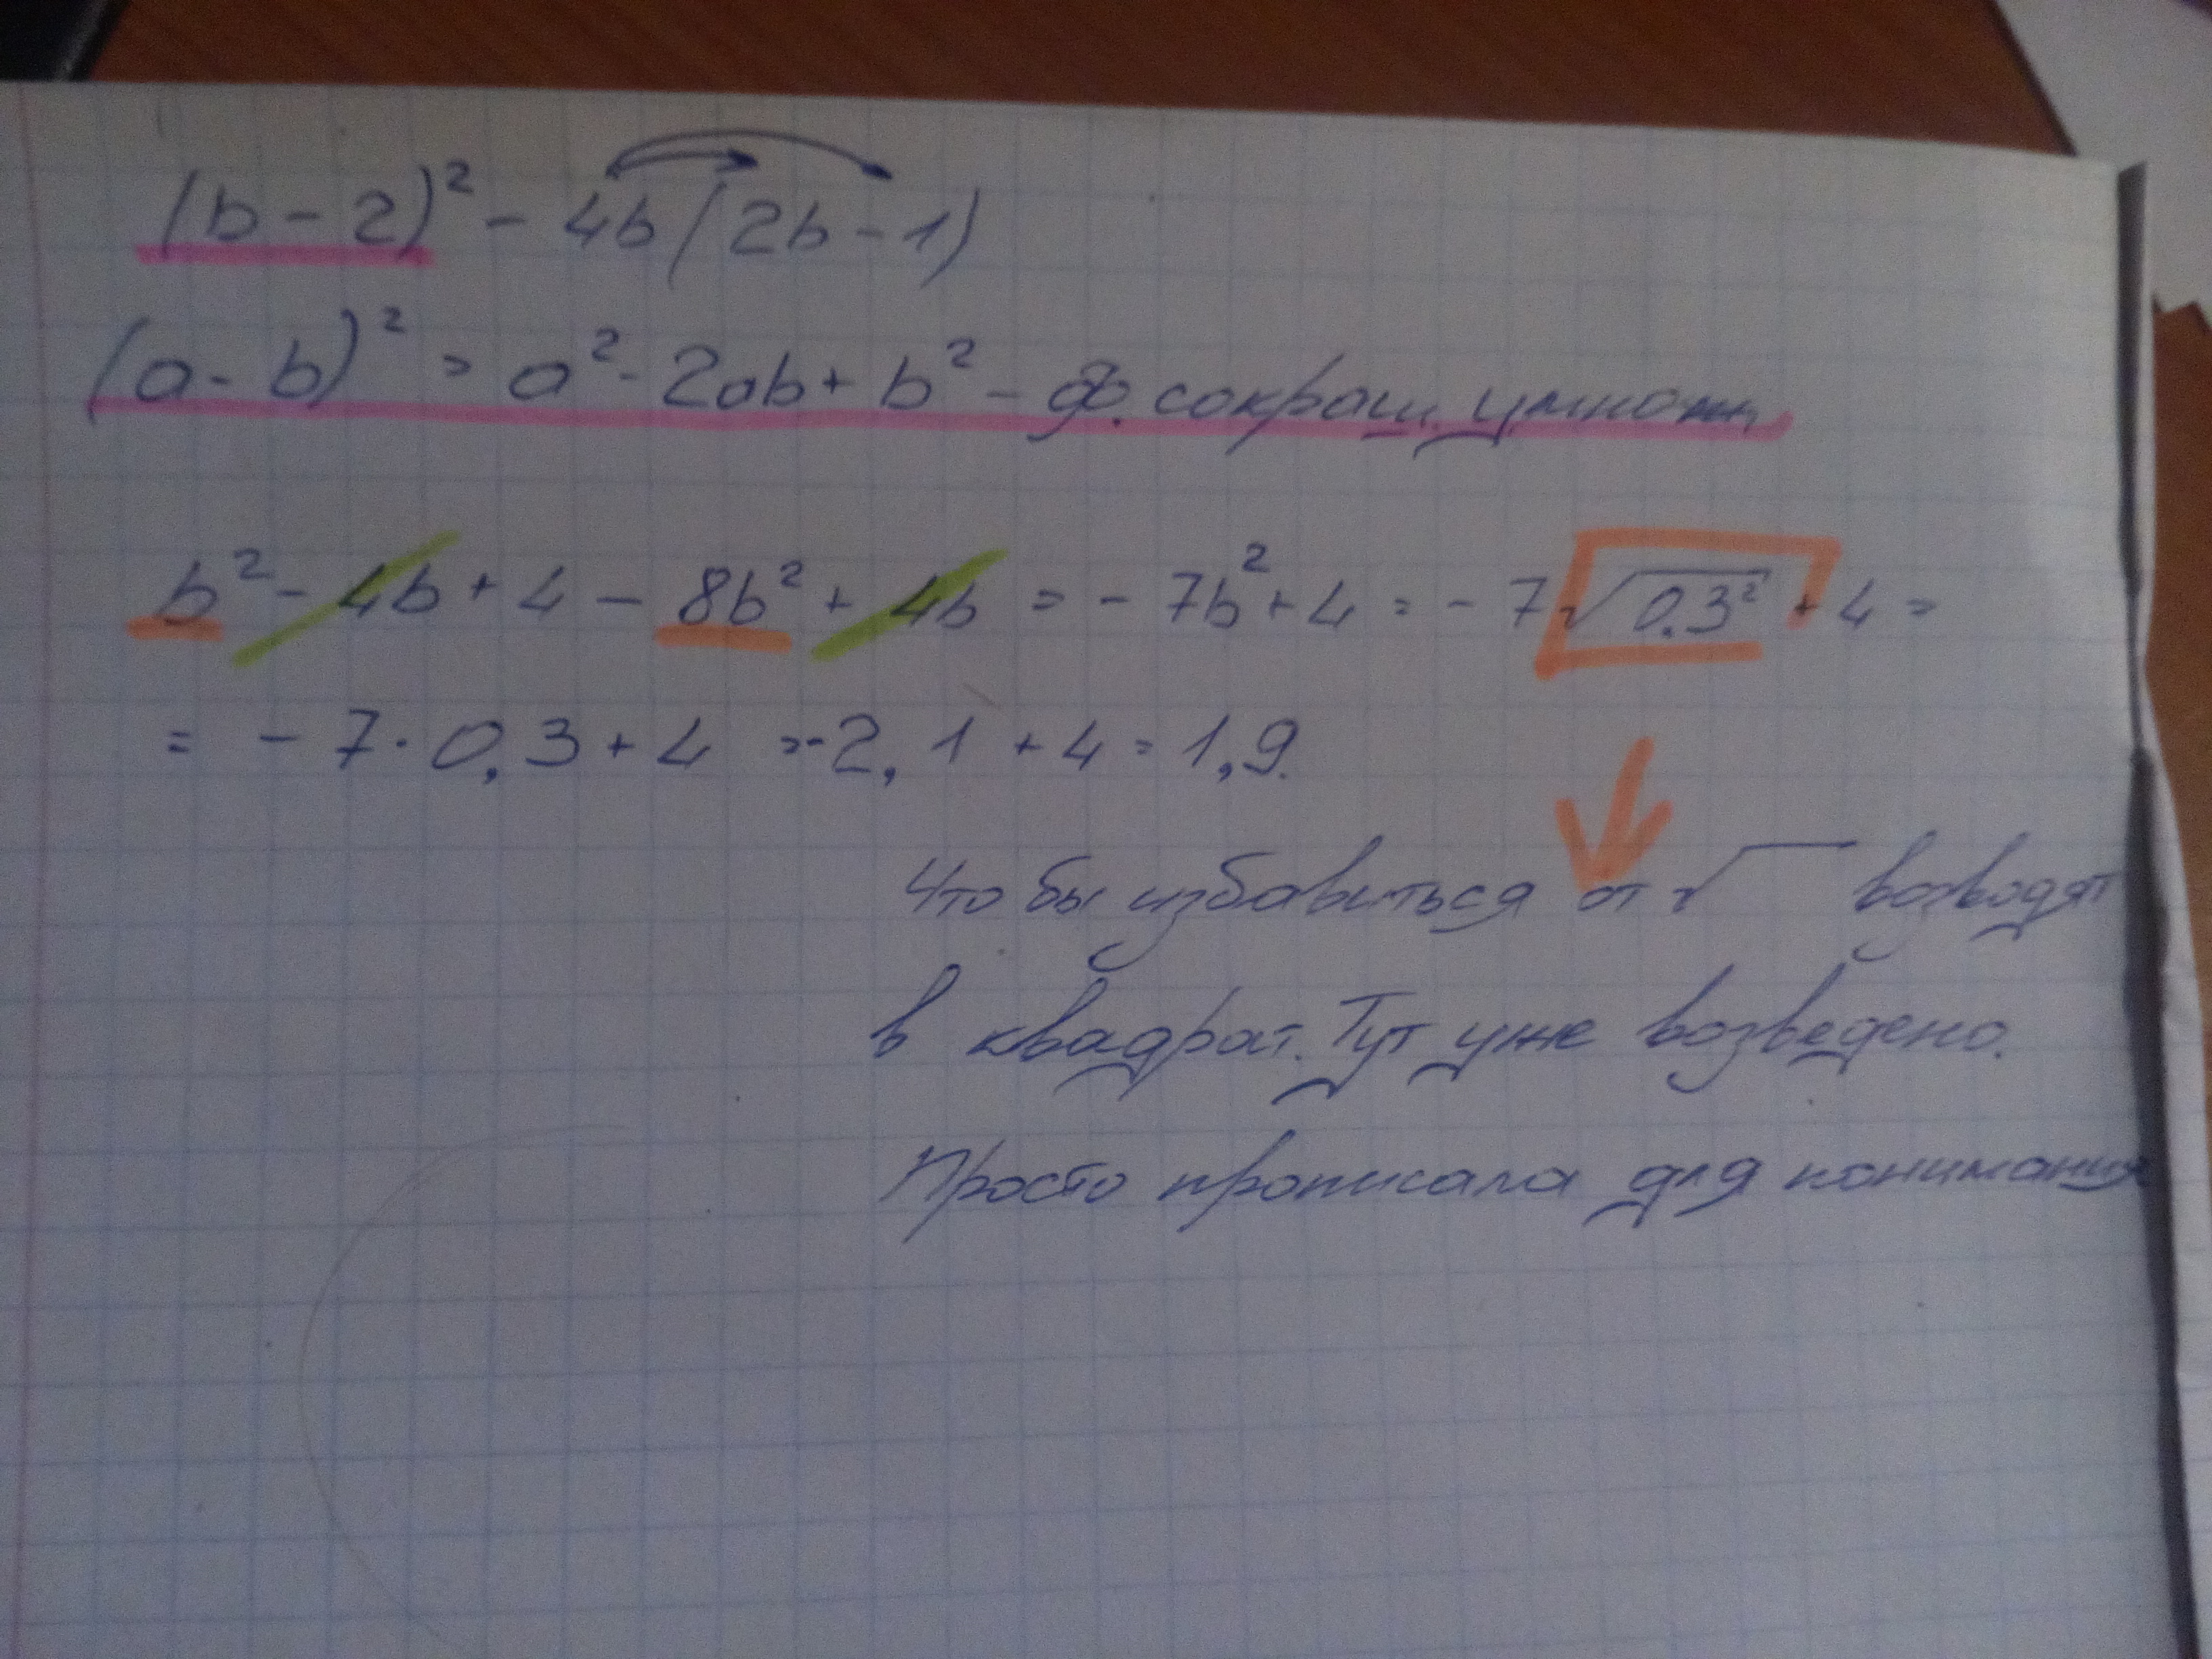 (b - 2)² - 4b(2b - 1)
(a - b)² = a² - 2ab + b² - ф. сокращ. умнож.
b² - 4b + 4 - 8b² + 4b = - 7b² + 4 = - 7√0.3² + 4 =
= - 7 · 0,3 + 4 = -2,1 + 4 = 1,9.
Что бы избавиться от √ возводят
в квадрат. Тут уже возведено.
Просто прописала для понимания